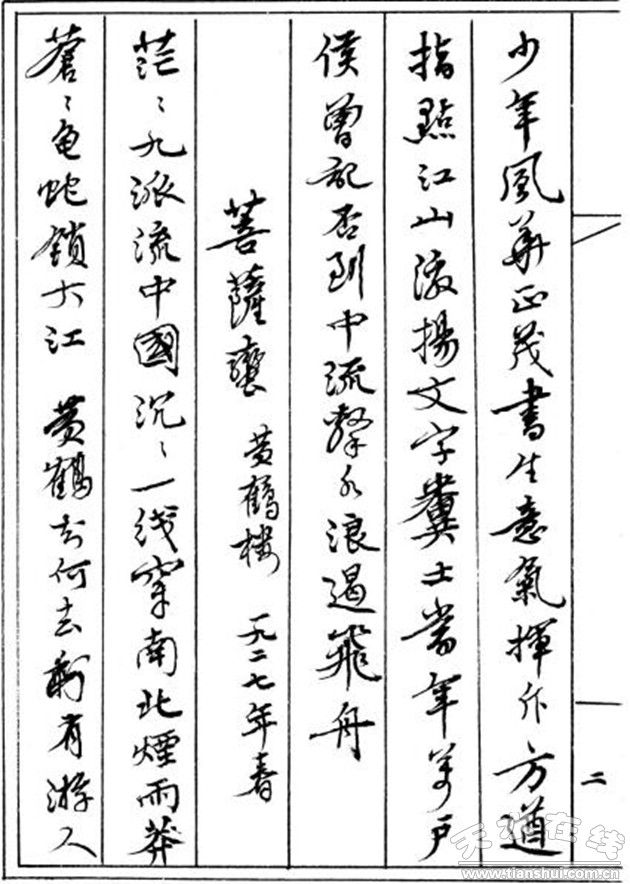 少年風華正茂書生意氣揮斥方遒
指點江山激揚文字糞土當年萬戶
侯曾記否到中流擊水浪遏飛舟
菩薩蠻 黄鶴樓 一九二七年春
茫〻九派流中國沉〻一线穿南北煙雨莽
蒼〻龟蛇鎖大江 黄鶴知何去剩有游人
二
天水在线
www.tianshui.com.cn